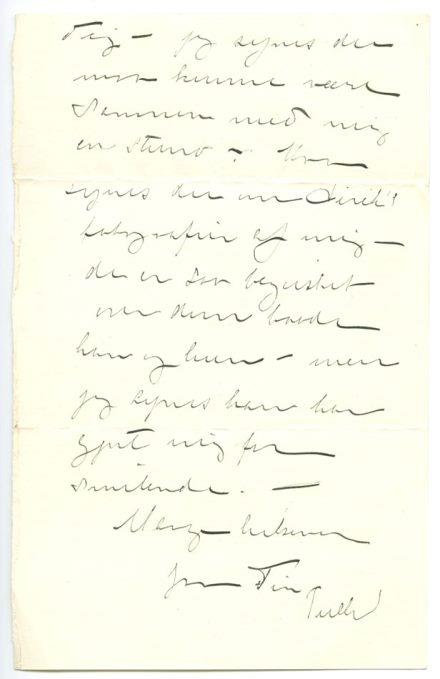 Dig – jeg synes du
maa kunne være
sammen med mig
en stund – Hva
synes du om Dirik's
fotografier af mig –
de er saa begeistret
over dem baade
han og hun – men
jeg synes han har
gjort mig for
smilende. –
Mange hilsener
fra Din
Tulla